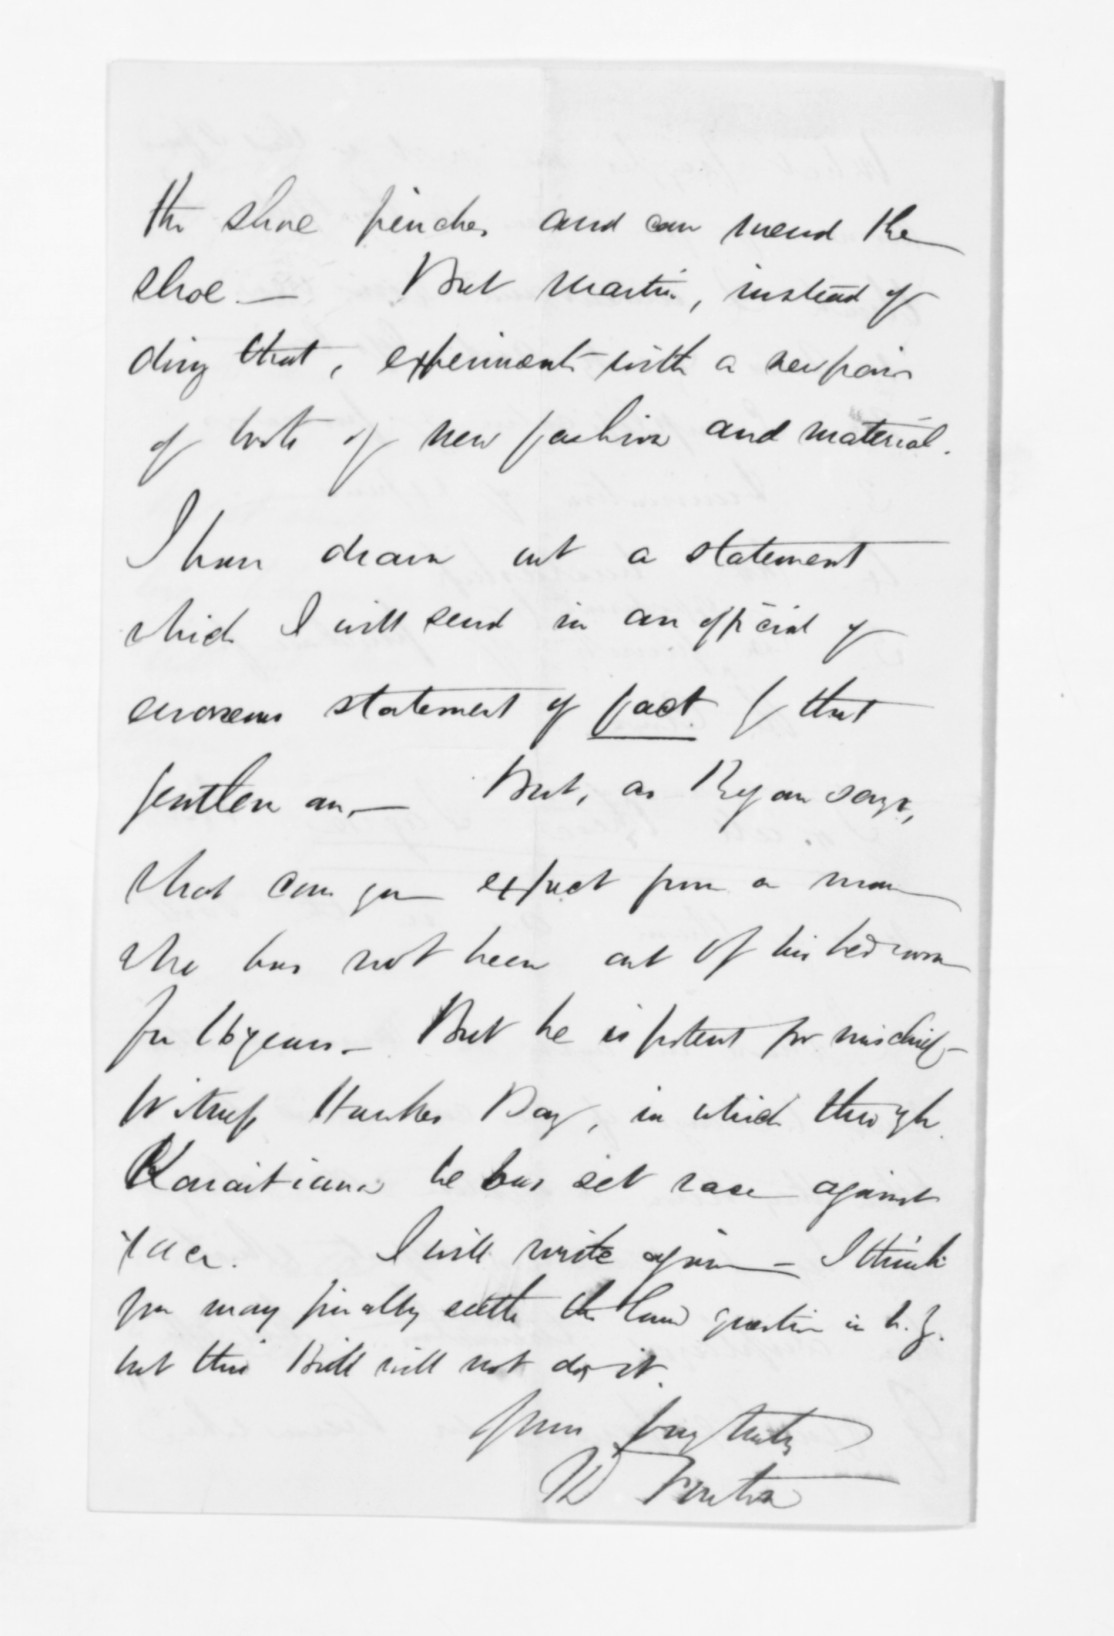 the shoe pinches and can mend the
shoe — But Martin, instead of
doing that, experiments with a new pair
of boots of new fashion and material.
I have drawn out a statement
which I will send in an official of
erroneous statement of fact of that
gentleman, — But, as Ryan says,
what can you expect from a man
who has not been out of his bedroom
for 16 years — But he is potent for mischief —
Witness Hawkes Bay, in which through
Karaitiana he has set race against
race. I will write again — I think
you may finally settle the land question in N.Z.
but this Bill will not do it.
Yours very truly
W Fenton